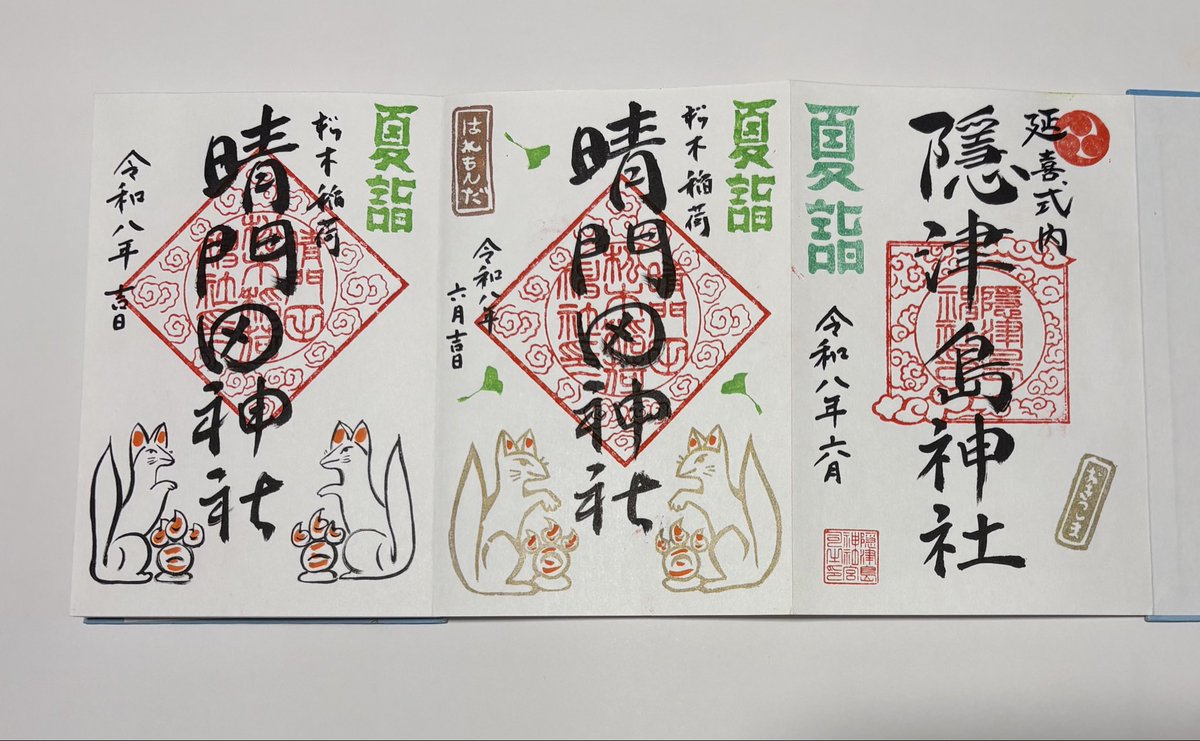 延喜式内
隱津島神社
おきつしま
夏詣
令和八年六月
隠津島
神社宮
司之印
夏詣
松木稲荷
晴門田神社
はれもんだ
令和八年
六月吉日
夏詣
松木稲荷
晴門田神社
令和八年
吉日